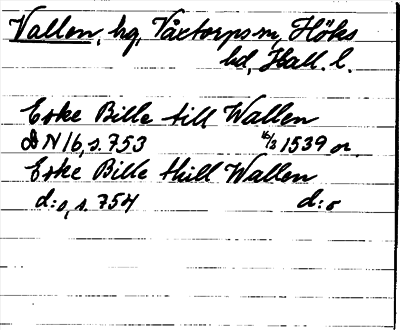 Vallen, hg, Våxtorps sn, Höks
hd, Hall. l.
Eske Bille till Wallen
DN 16, s. 753 16/3 1539 or.
Eske Bille thill Wallen
d:o, s. 754 d:o